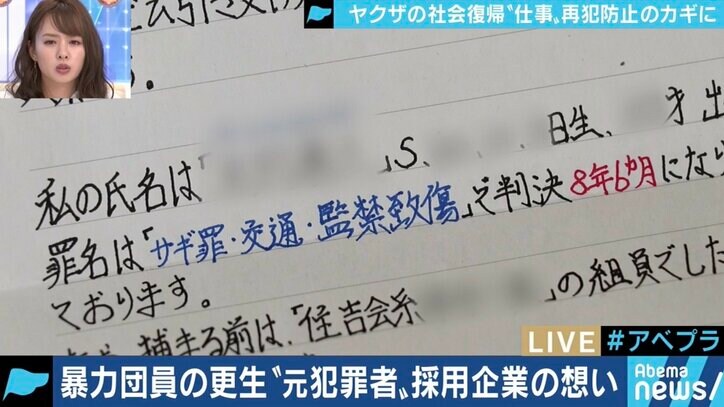 ヤクザの社会復帰〝仕事〟再犯防止のカギに
す。
私の氏名は「 」S. 日生、 才 出
罪名は「サギ罪・交通・監禁致傷」で判決8年6ヵ月になっ
ております。
捕まる前は、「住吉会系 」の組員でした
LIVE #アベプラ
暴力団員の更生〝元犯罪者〟採用企業の想い
Abema news/